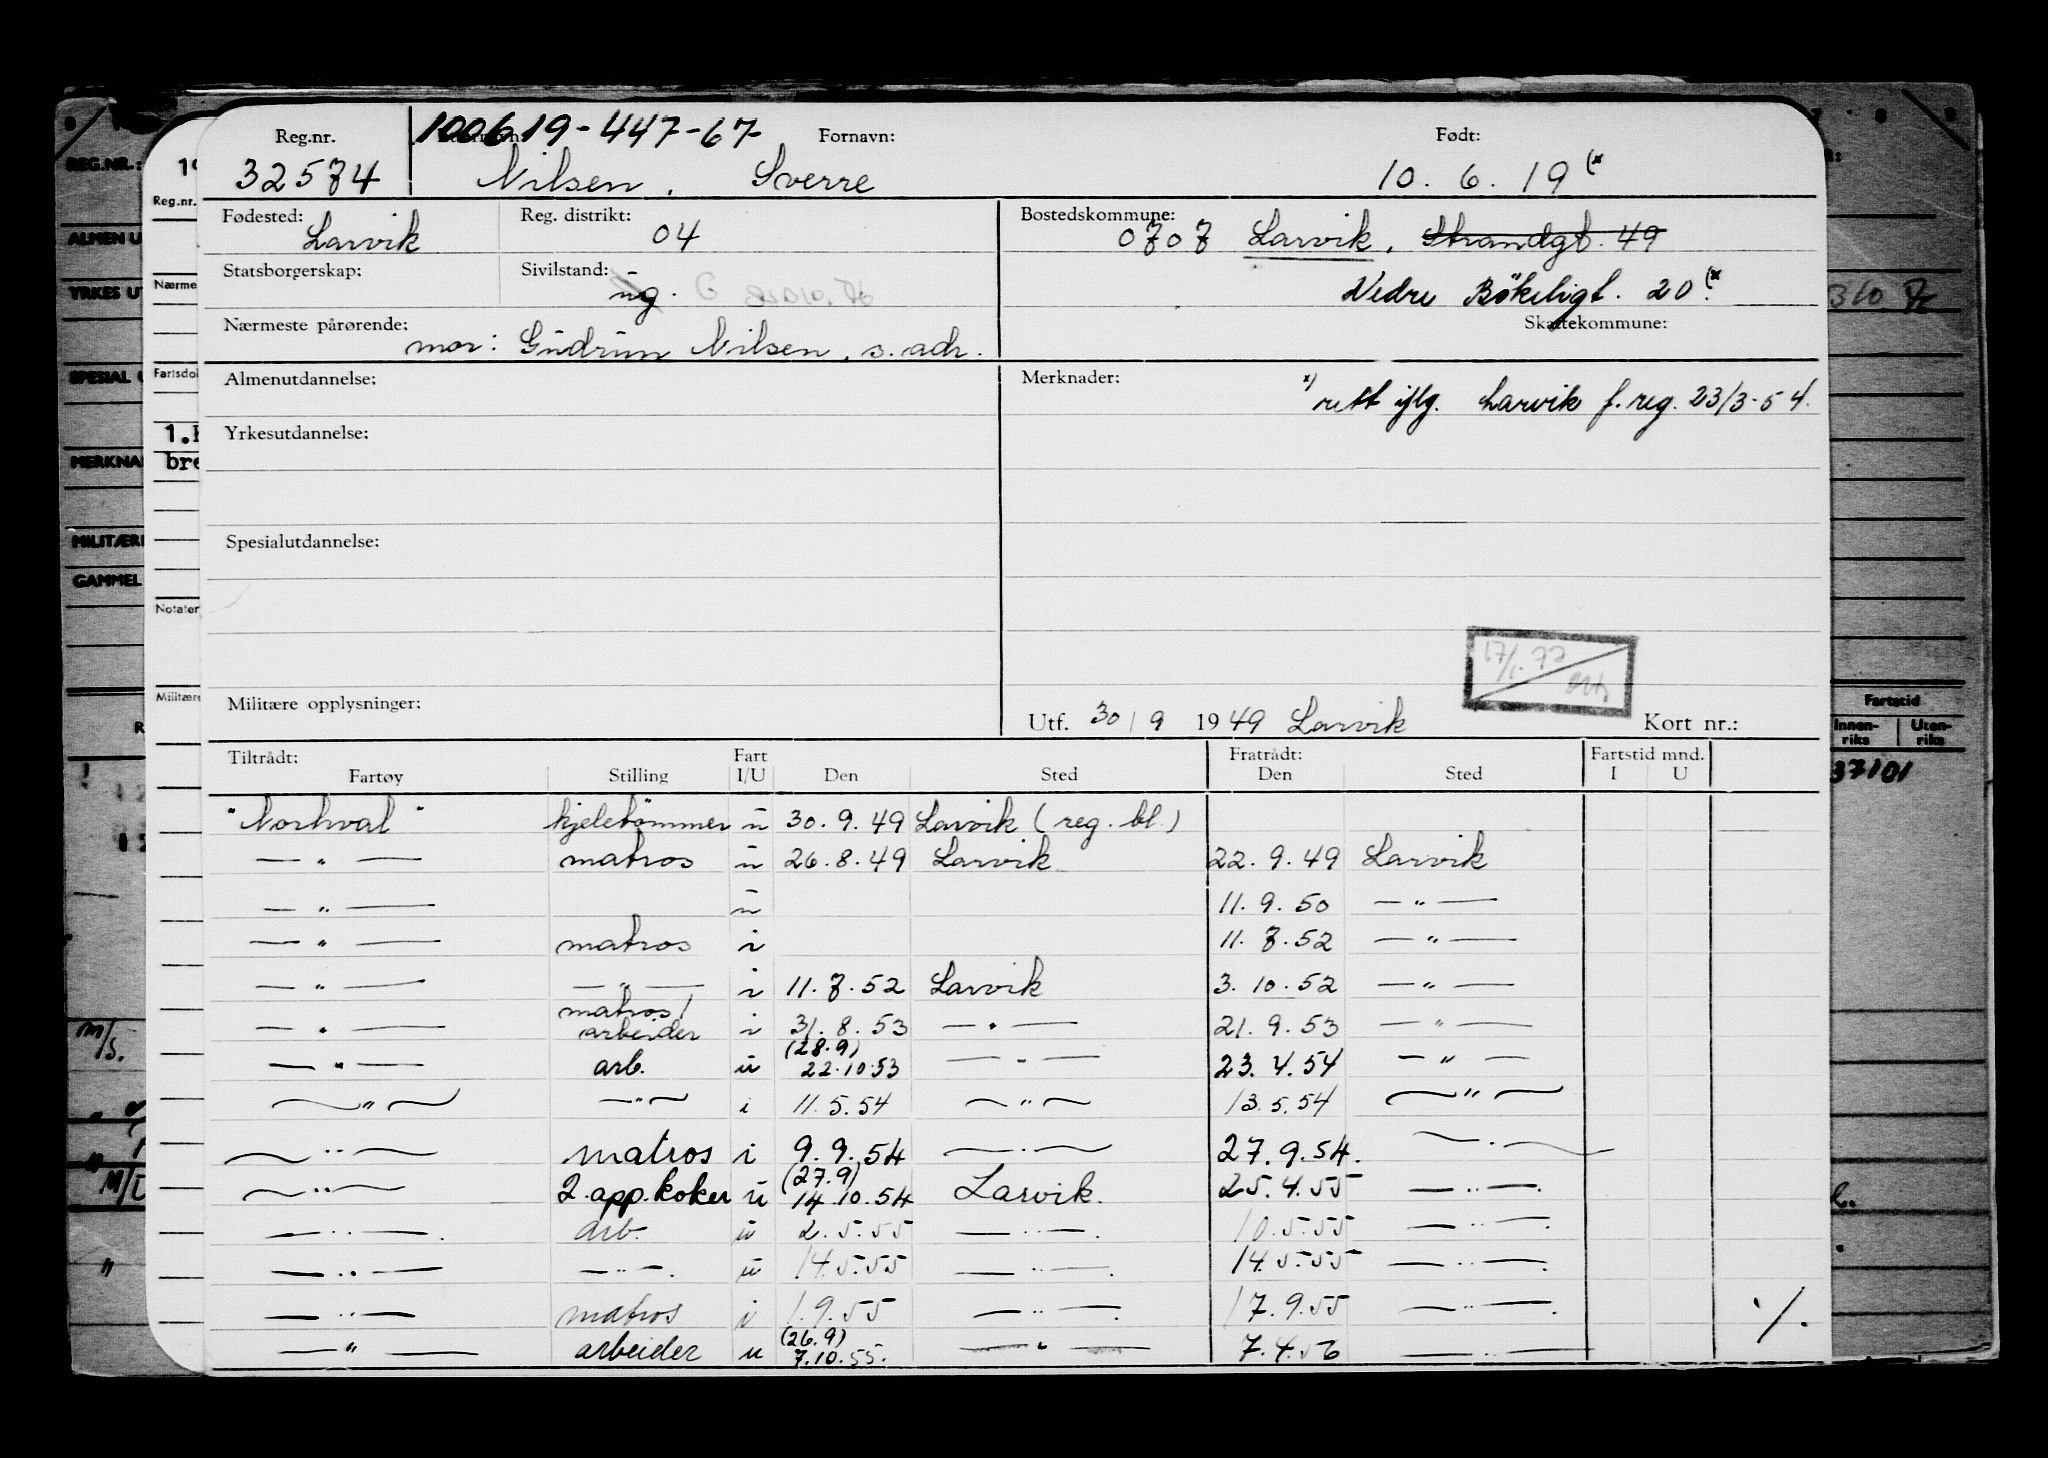 100619-447-67
Reg.nr. Fornavn: Født:
32574 Nilsen, Sverre 10. 6. 19 (x
Fødested: Larvik Reg. distrikt: 04 Bostedskommune: 0707 Larvik, Strandgt. 49
Statsborgerskap: Sivilstand: ug. G Nedre Bøkeligt. 20 (x
Nærmeste pårørende: mor: Gudrun Nilsen, s. adr. Skattekommune:
Almenutdannelse: Merknader: x) rett iflg. Larvik f. reg. 23/3-54.
Yrkesutdannelse:
Spesialutdannelse:
17/1.77
Militære opplysninger: Utf. 30/9 1949 Larvik Kort nr.:
Tiltrådt: Fart Fratrådt: Fartstid mnd.
Fartøy Stilling I/U Den Sted Den Sted I U
"Norhval" kjeletømmer u 30. 9. 49 Larvik (reg. bl.)
— " — matros u 26. 8. 49 Larvik 22. 9. 49 Larvik
— " — u 11. 9. 50 — " —
— " — matros i 11. 7. 52 — " —
— " — — " — i 11. 7. 52 Larvik 3. 10. 52 — " —
— " — matros/ arbeider i 31. 8. 53 — " — 21. 9. 53 — " —
— " — arb. u (28.9) 22.10.53 — " — 23. 4. 54 — " —
— " — — " — i 11. 5. 54 — " — 13. 5. 54 — " —
— " — matros i 9. 9. 54 — " — 27. 9. 54. — " —
— " — 2. app. koker u (27.9) 14. 10. 54 Larvik. 25. 4. 55 — " —
— " — arb. u 2. 5. 55 — " — 10. 5. 55 — " —
— " — — " — u 14. 5. 55 — " — 14. 5. 55 — " —
— " — matros i 1. 9. 55 — " — 17. 9. 55 — " —
— " — arbeider u (26.9) 7.10.55. — " — 7. 4. 56 — " —
REG.NR.:
ALMEN U
YRKES UT
SPESIAL U
MERKNA
MILITÆRE
GAMMEL
Reg.nr.
Nærme
Fartsdok
bre
Notater
Militære
Fartstid
Innen-riks Uten-riks
37101
M/S.